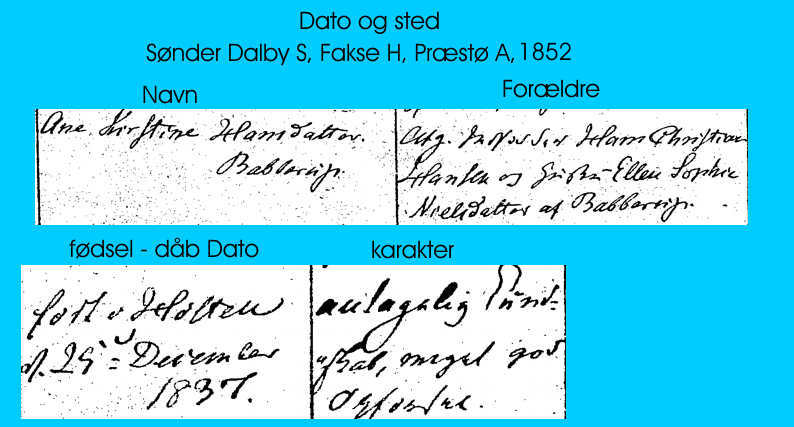 Dato og sted
Sønder Dalby S, Fakse H, Præstø A, 1852
Navn
Forældre
Ane Kirstine Hansdatter.
Babberup.
Hans Christian
Hansen og Hustru Ellen Sophie
Nielsdatter af Babberup.
fødsel - dåb Dato
karakter
født i Holten
d. 29 December
1837.
antagelig Kund-
skab, meget god
Opførsel.